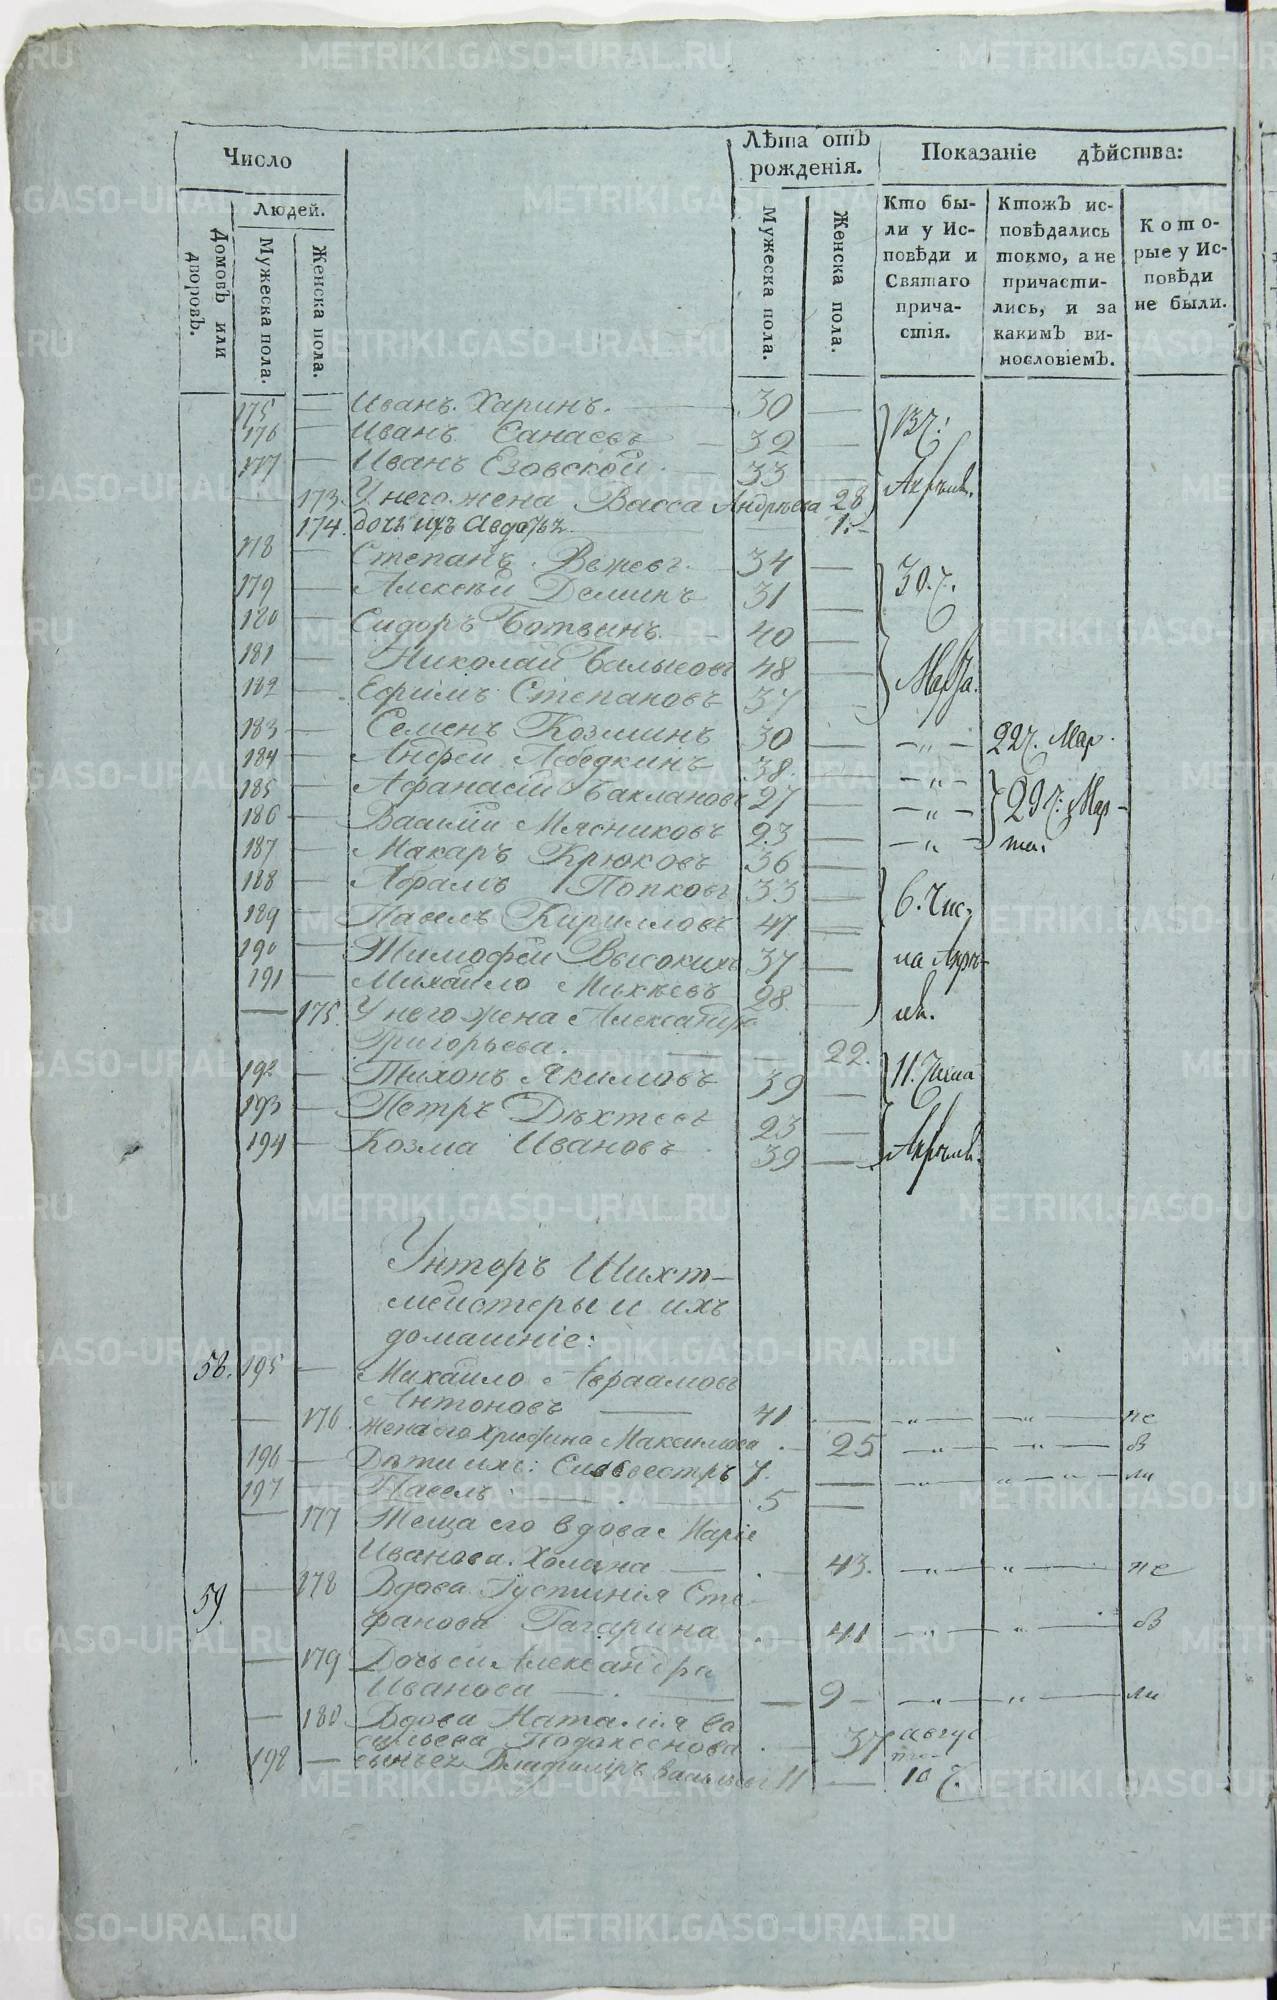 Число
Лѣта отъ рожденія.
Показаніе дѣйства:
Людей.
Домовъ или дворовъ.
Мужеска пола.
Женска пола.
Мужеска пола.
Женска пола.
Кто бы-
ли у Ис-
повѣди и
Святаго
прича-
стія.
Ктожъ ис-
повѣдались
токмо, а не
причасти-
лись, и за
какимъ ви-
нословіемъ.
Кото-
рые у Ис-
повѣди
не были.
175 — Иванъ Харинъ. — 30 — 13 ч:
176 — Иванъ Санаевъ — 32 —
177 — Иванъ Езовской. — 33 Апрѣля.
— 173. У него жена Васса Андрѣева 28
174. дочь ихъ Авдотья — 1. —
178 — Степанъ Вежевъ. — 34 — 30. ч.
179 — Алексѣй Деминъ 31 —
180 — Сидоръ Ботвинъ — 40 —
181 — Николай Балысовъ 48 — Марта.
182 — Ефимъ Степановъ 37 —
183 — Семенъ Козминъ 30 — — „ — 22 ч. Мар.
184 — Андрей Лебедкинъ 38. — — „ —
185 — Афанасій Баклановъ 27 — — „ — 29 ч: Мар-
186 — Василій Мясниковъ 23 — — „ — та.
187 — Макаръ Крюковъ 36 —
188 — Абрамъ Попковъ 33 — 6. Чис-
189 — Павелъ Кирилловъ 41 —
190 — Тимофей Высокихъ 37 — ла Апрѣ-
191 — Михайло Михѣевъ 28. —
— 175. У него жена Александра ля.
Григорьева. — 22.
192 — Тихонъ Якимовъ 39 — 11. Числа
193 — Петръ Дѣхтевъ 23 —
194 — Козма Ивановъ 39 — Апрѣля.
Унтеръ Шихт-
мейстеры и ихъ
домашніе:
58. 195 — Михайло Авраамовъ
Антоновъ — 41 — — „ — — „ — не
— 176. Жена его Христина Максимова — 25 — „ — — „ — б
196 — Дѣти ихъ: Силвестръ 7. —
197 — Павелъ — 5 — — „ — „ — „ — ли
— 177 Теща его вдова Марія
Иванова Холина — 43. — „ — „ — не
59. — 178 Вдова Густинія Сте-
фанова Гагарина — 41 — „ — „ — б
— 179 Дочь ея Александра
Иванова — 9 — — „ — „ — ли
— 180 Вдова Наталія Ва
сильева — 37 авгус
та
198 — сынъ ея Владиміръ Васильевъ 11 — 10 ч.
METRIKI.GASO-URAL.RU